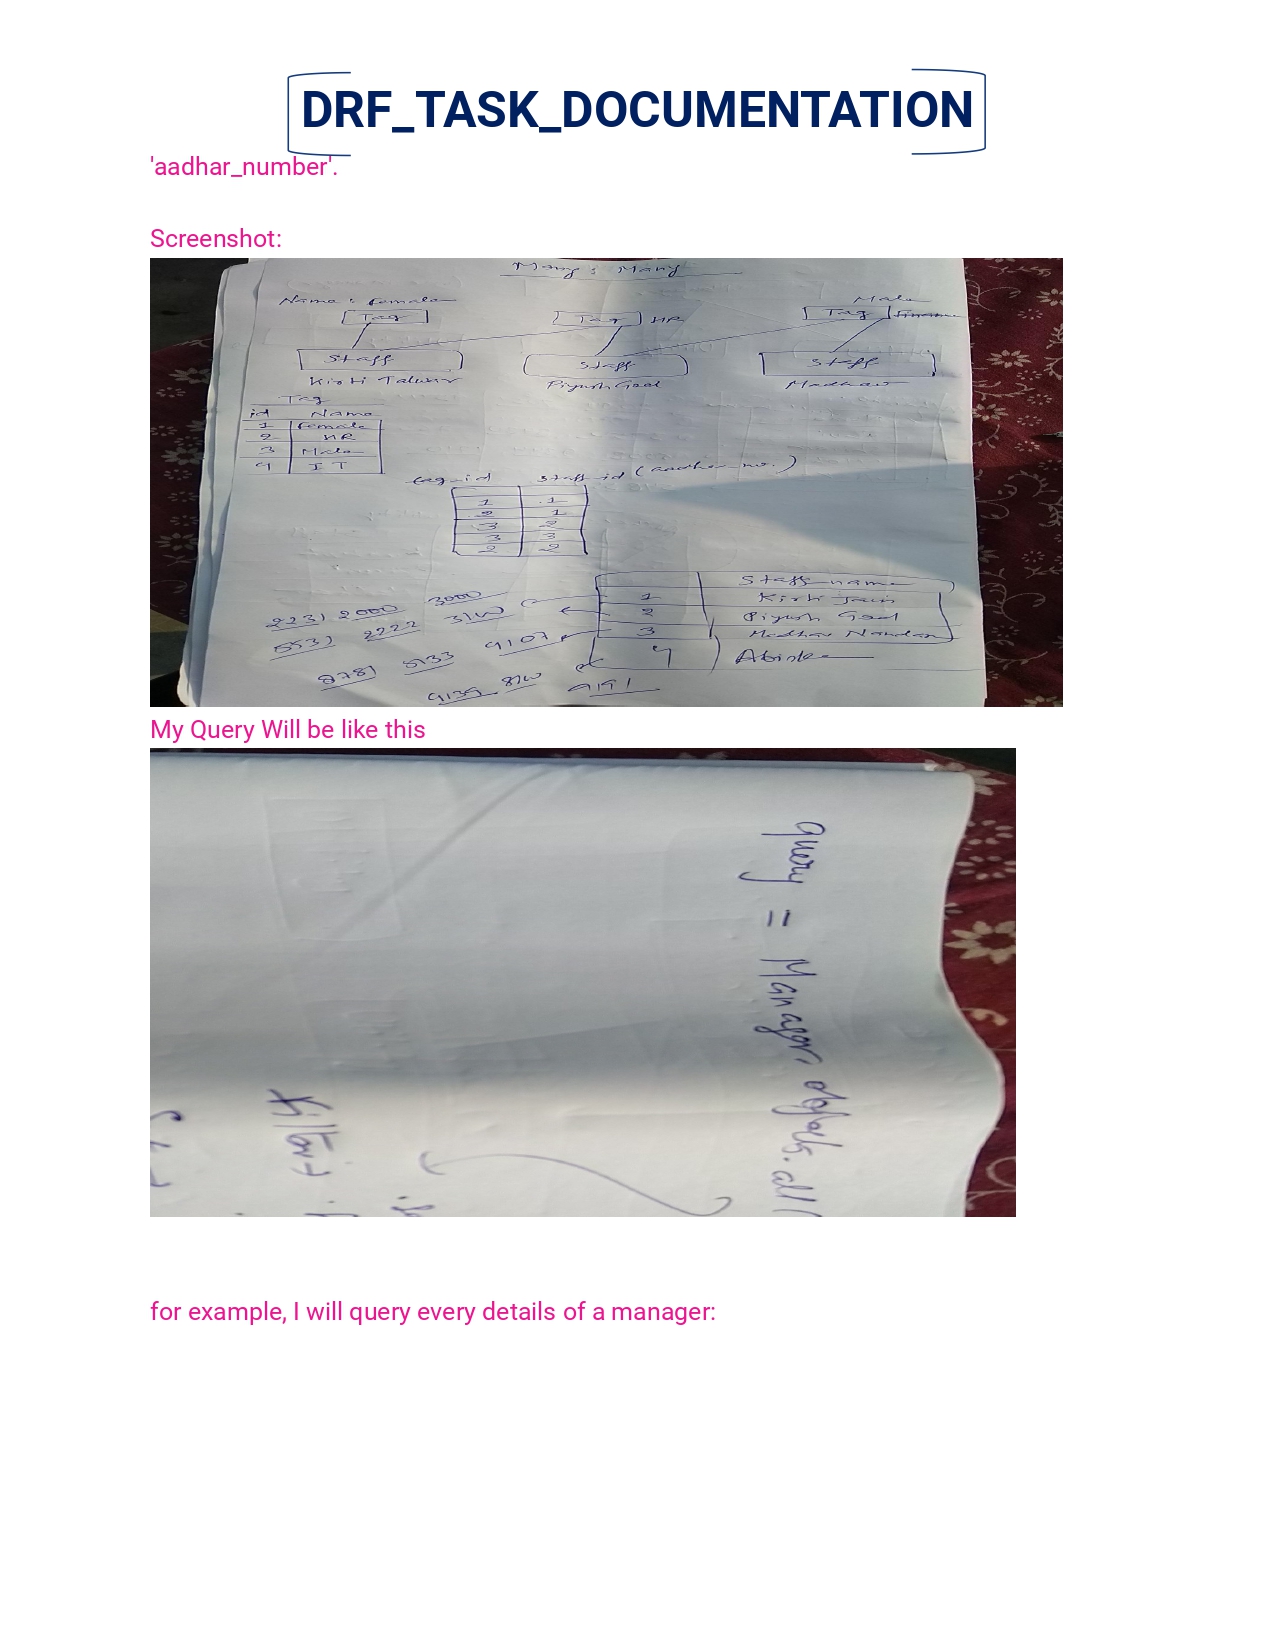 DRF_TASK_DOCUMENTATION
'aadhar_number'.
Screenshot:
Many : Many
Name : female
Male
Tag
Tag HR
Tag Finance
Staff
Staff
Staff
Piyush Goal
Madhav
Tag
id Name
1 female
2 HR
3 Male
4 IT
tag-id staff-id (aadhar no.)
1 1
2 1
3 2
3 3
2 2
Staff name
1 Kirti Jain
2 Piyush Goal
3 Madhav Nandan
4
2231 2000 3000
2222
5133 9107
9191
My Query Will be like this
query = Manager objects.all(
for example, I will query every details of a manager: